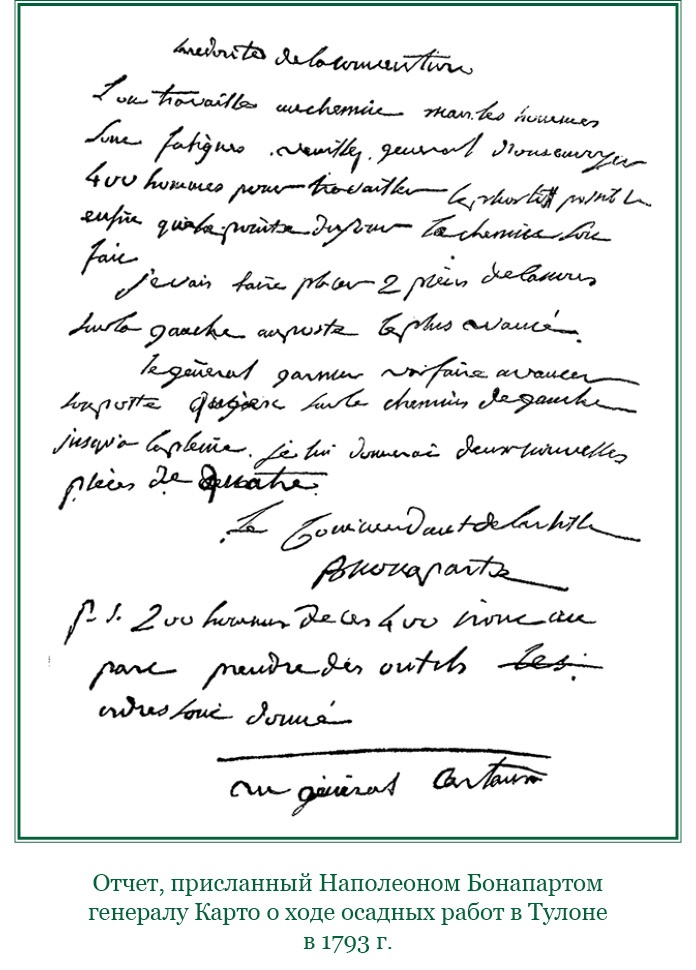 de la convention
L'on travaille au chemin mais les hommes
sont fatigues. veuillez, general, nous envoyer
400 hommes pour travailler
enfin qu'a la pointe du jour le chemin soit
fait
je vais faire placer 2 pieces de
sur la gauche au poste le plus avancé.
le général garnier va faire avancer
son poste sur le chemin de gauche
jusqu'a la pleine. je lui donnerai deux nouvelles
pièces de quatre.
Le Commandant de l'artille
Buonaparte
p. s. 200 hommes de ces 400 iront au
parc prendre des outils les
ordres sont donné
au général Cartaux
Отчет, присланный Наполеоном Бонапартом
генералу Карто о ходе осадных работ в Тулоне
в 1793 г.